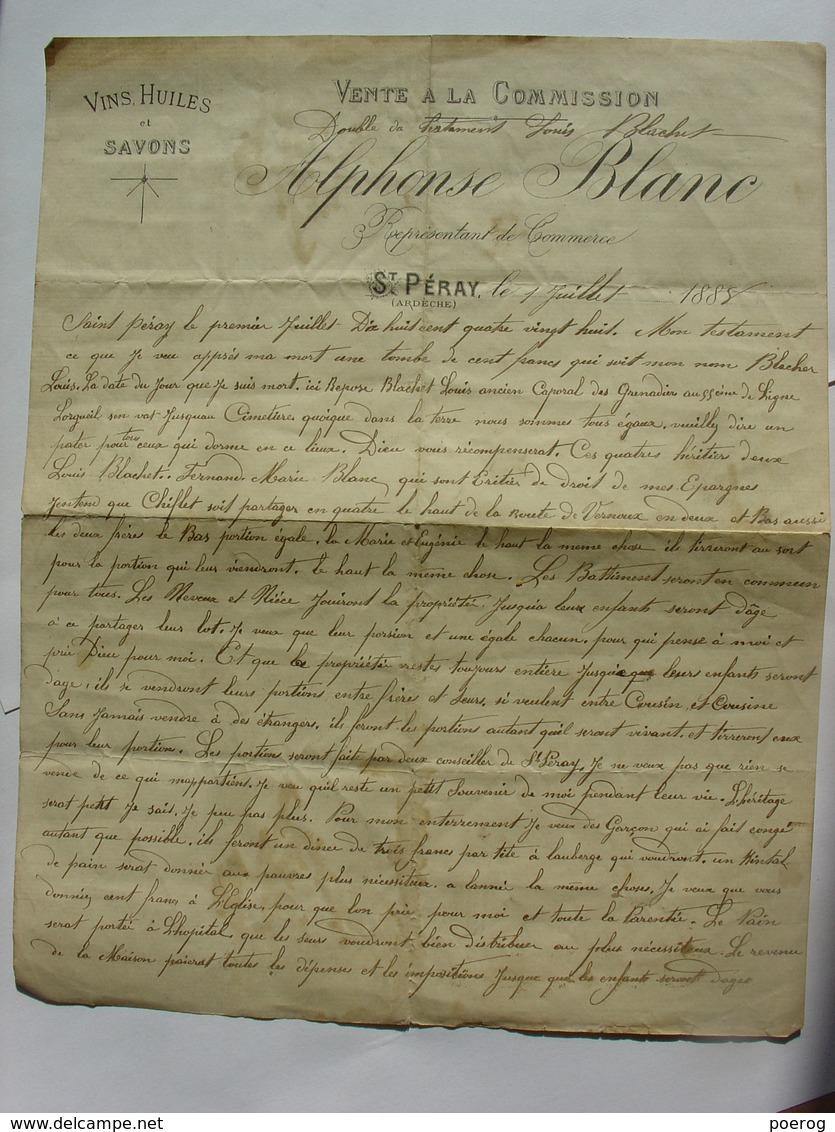 VINS, HUILES
et
SAVONS
VENTE A LA COMMISSION
Double du testament Louis Blachet
Alphonse Blanc
Représentant de Commerce
ST PÉRAY, le 1 Juillet 1888
(ARDÈCHE)
Saint Péray le premier Juillet Dix huit cent quatre vingt huit. Mon testament
ce que Je veu apprés ma mort une tombe de cent francs qui soit mon nom Blachet
Louis. La date du Jour que Je suis mort. ici Repose Blachet Louis ancien Caporal des Grenadier au 55ème de Ligne
Lorgueil sen vat Jusquau Cimetière quoique dans la terre nous sommes tous égaux. veuillez dire un
pater pour tous ceux qui dorme en ce lieux. Dieu vous récompenserat. Ces quatres héritier deux
Louis Blachet.. Fernand. Marie Blanc, qui sont Eritier de droit de mes Epargnes
Jentend que Chiflet soit partager en quatre le haut de la Route de Vernoux en deux et Bas aussi
les deux frères le Bas portion égale. la Marie et Eugénie le haut la meme chose ils tirreront au sort
pour la portion qui leur viendront. le haut la même chose. Les Battiment seront en commun
pour tous. Les Neveux et Nièce Jouiront la propriété Jusqu'a leux enfants seront d'âge
à ce partager leur lot. Je veux que leur porsion et une égale chacun. pour qui pense à moi et
prie Dieu pour moi. Et que la propriété restes toujours entière Jusqua que leurs enfants seront
dage, ils se vendront leurs portions entre frères et seurs. si veulent entre Cousin et Cousine
Sans Jamais vendre à des étrangers. ils feront les portions autant quil seront vivant. et tirreront eux
pour leur portion. Les portions seront fait par deux conseiller de St Péray. Je ne veux pas que rien se
vende de ce qui mappartient. Je veu quil reste un petit souvenir de moi pendant leur vie. L'héritage
serat petit Je sais. Je peu pas plus. Pour mon enterrement Je veux des Garçon qui ai fait congé
autant que possible. ils feront un diner de trois francs par tête à lauberge qui voudront. un Kintal
de pain serat donner aux pauvres plus nécessiteux. a lannée la même choses. Je veux que vous
donniez cent francs à L'Eglise, pour que lon prie pour moi et toute la Parentée. Le Pain
serat portée à Lhopital, que les seurs voudront bien distribuer au plus nécessiteux. Le revenu
de la Maison paierat toutes les dépenses et les impositions Jusque que les enfants seront dages
poerog